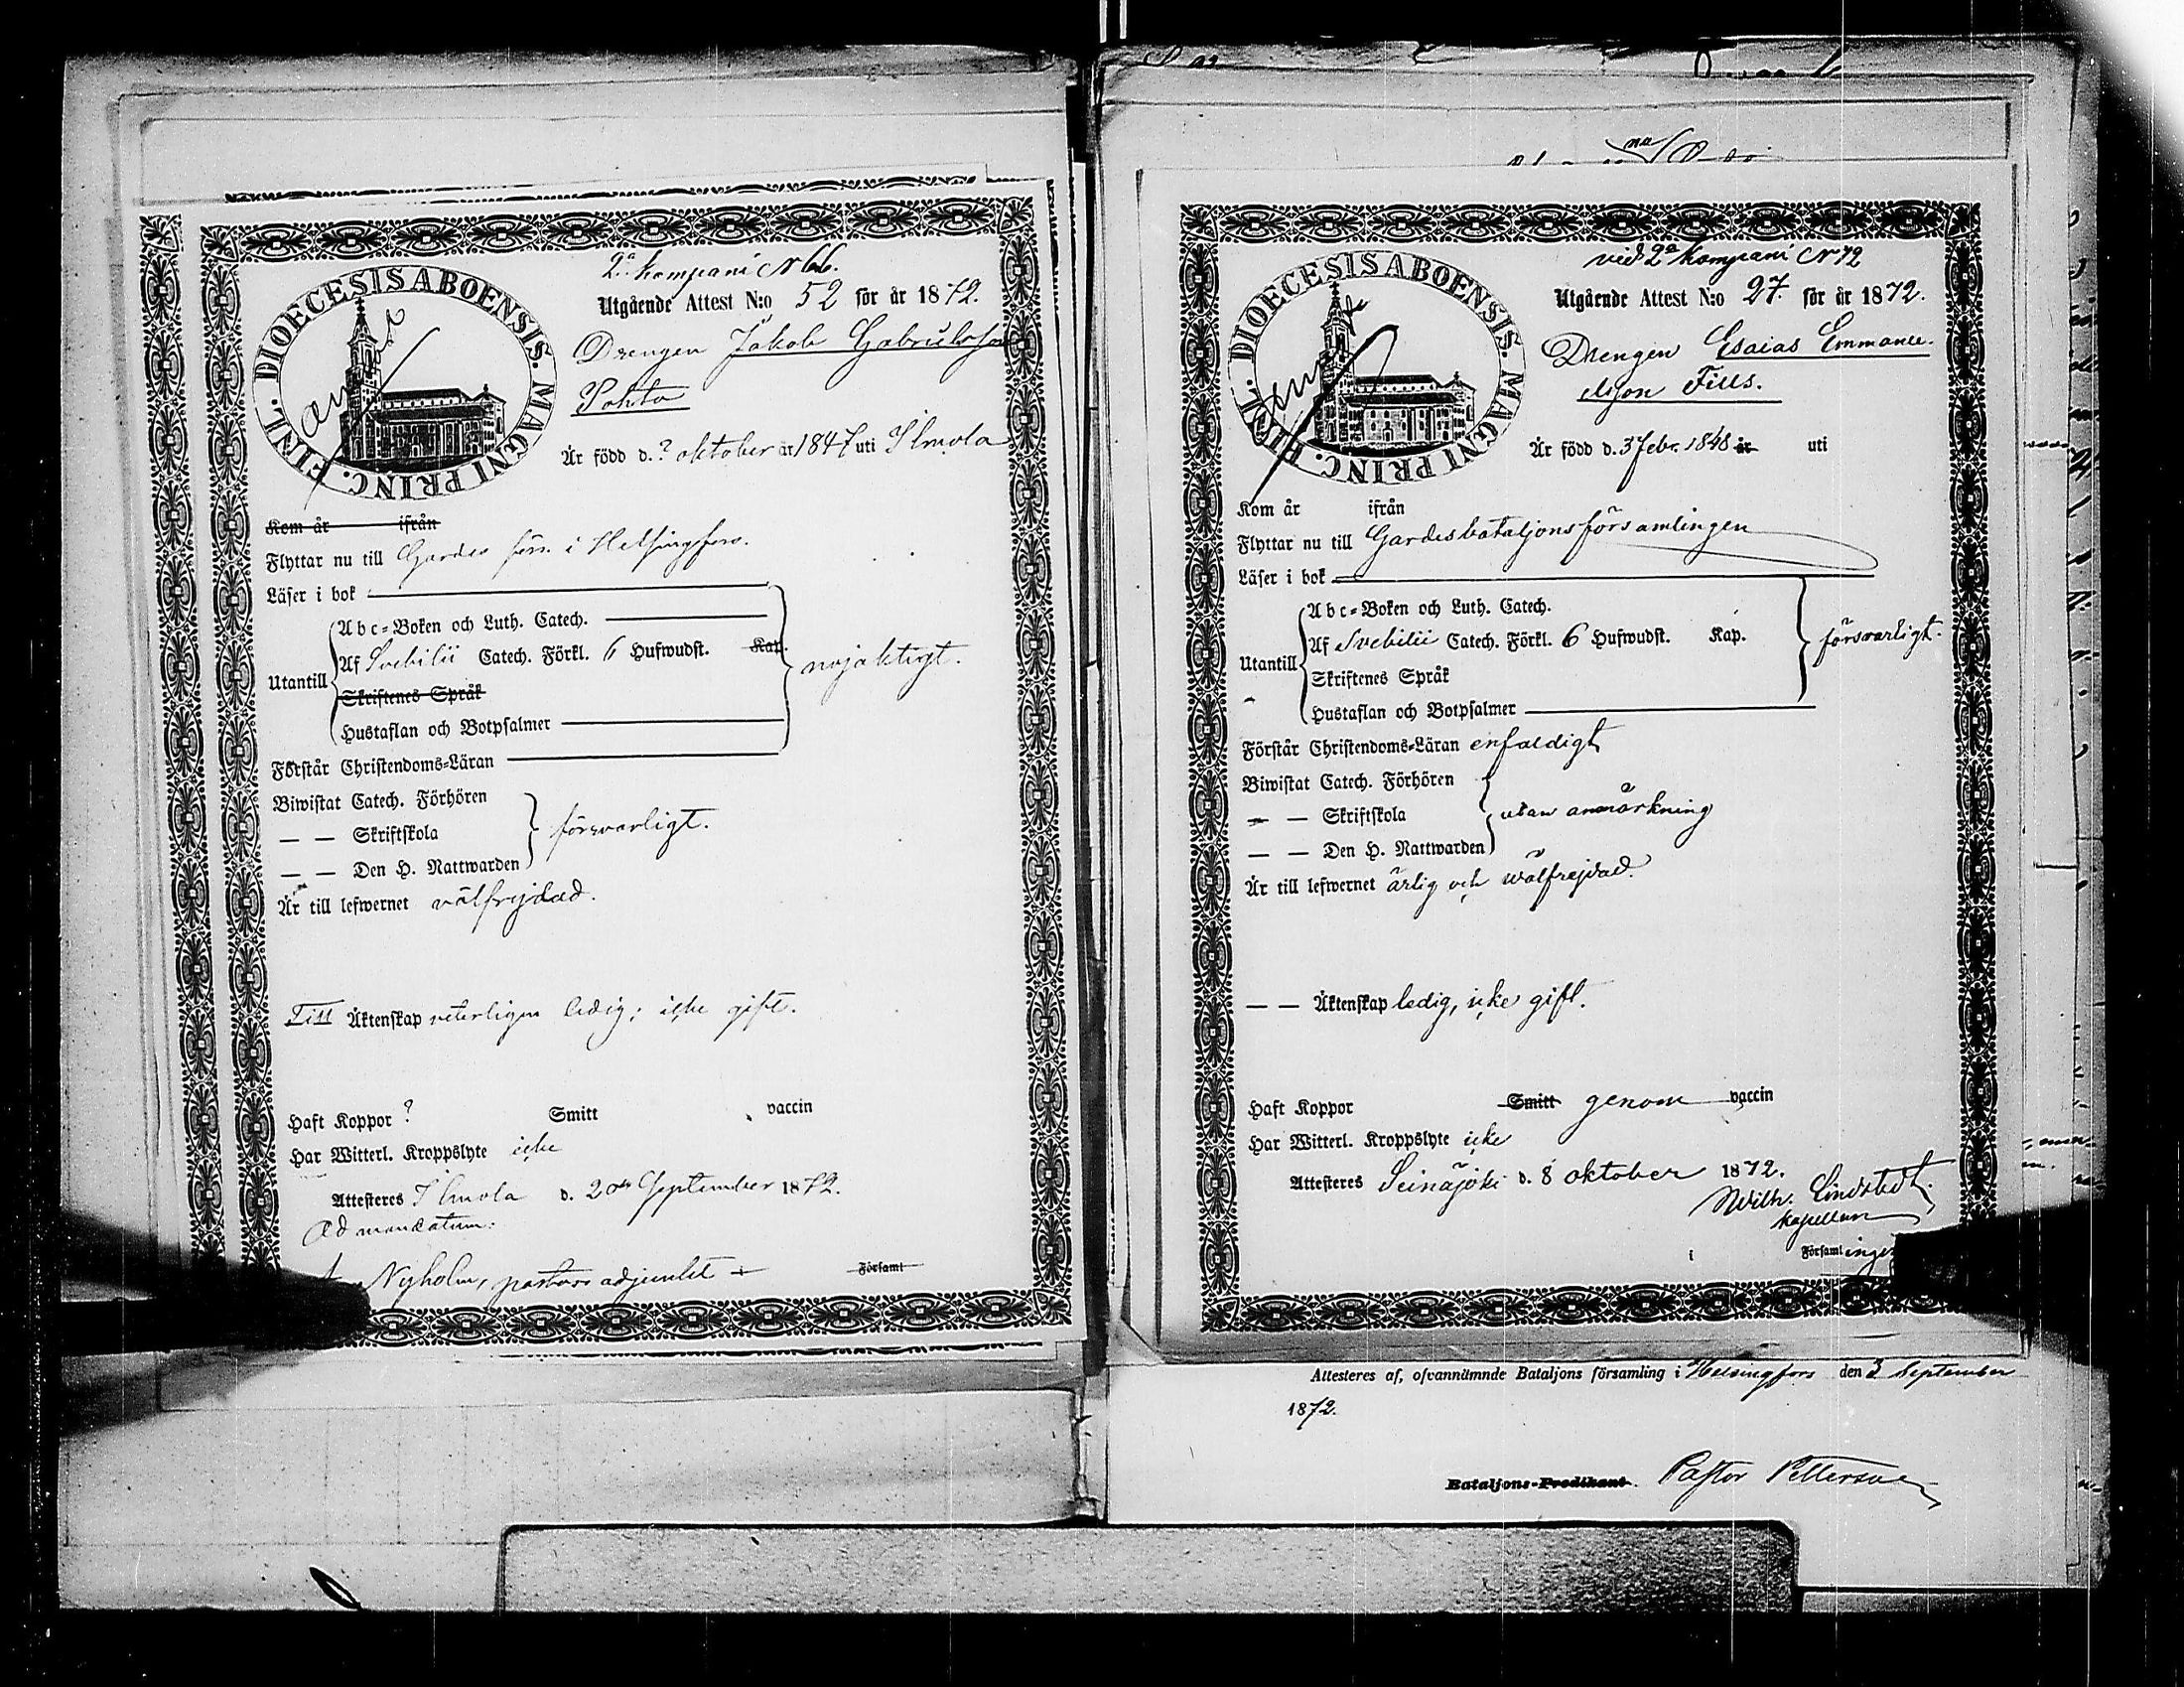 2a Kompani N 66.
Utgående Attest N:o 52 för år 1872.
DIOECESIS ABOENSIS. MAGNI PRINC. FINL.
Drengen Jakob Gabrielsson
Pohto
Är född d. ? oktober år 1847 uti Ilmola
Kom år ifrån
Flyttar nu till Gardes förs. i Helsingfors.
Läser i bok
Abc=Boken och Luth. Catech.
Af Svebilii Catech. Förkl. 6 Hufwudst. Kap.
Utantill
nöjaktigt.
Skriftenes Språk
Hustaflan och Botpsalmer
Förstår Christendoms=Läran
Biwistat Catech. Förhören
— — Skriftskola
försvarligt.
— — Den H. Nattwarden
Är till lefwernet välfrejdad.
Till Äktenskap veterligen ledig; icke gift.
Haft Koppor ? Smitt vaccin
Har Witterl. Kroppslyte icke
Attesteres Ilmola d. 20de September 1872.
Ad mandatum:
Nyholm, pastors adjunkt i Församl
vid 2a Kompani N 72
Utgående Attest N:o 27. för år 1872.
DIOECESIS ABOENSIS. MAGNI PRINC. FINL.
Drengen Esaias Emmanu-
elsson Fills.
Är född d. 3 Febr. 1848 år uti
Kom år ifrån
Flyttar nu till Gardesbataljonsförsamlingen
Läser i bok
Abc=Boken och Luth. Catech.
Af Svebilii Catech. Förkl. 6 Hufwudst. Kap.
försvarligt.
Utantill
Skriftenes Språk
Hustaflan och Botpsalmer
Förstår Christendoms=Läran enfaldigt
Biwistat Catech. Förhören
— — Skriftskola
utan anmärkning
— — Den H. Nattwarden
Är till lefwernet ärlig och wälfrejdad.
— — Äktenskap ledig, icke gift.
Haft Koppor Smitt genom vaccin
Har Witterl. Kroppslyte icke
Attesteres Seinäjoki d. 8 oktober 1872.
Wilh. Lindstedt.
kapellan
i Församlingen
Attesteres af, ofvannämnde Bataljons församling i Helsingfors den 3 September
1872.
Bataljons-Predikant. Pastor Pettersson